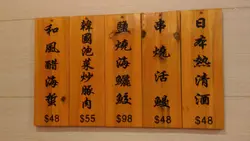 日本熱清酒
$48
串燒活鱔
$48
鹽燒海
$98
韓國泡菜炒豚肉
$55
和風醋海蜇
$48